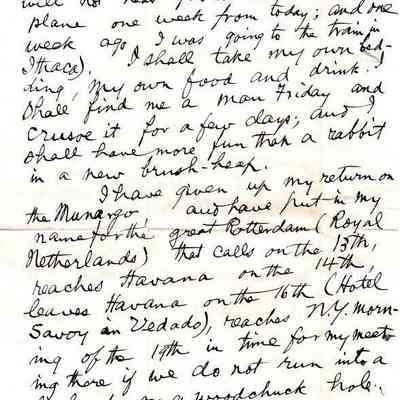 will not hear
plane one week from today; and one
week ago I was going to the train in
Ithaca). I shall take my own bed-
ding, my own food and drink. I
shall find me a man Friday and
Crusoe it for a few days; and I
shall have more fun than a rabbit
in a new brush-heap.
I have given up my return on
the Munargo, and have put in my
name for the great Rotterdam (Royal
Netherlands) that calls on the 13th,
reaches Havana on the 14th,
leaves Havana on the 16th (Hotel
Savoy in Vedado), reaches N.Y. morn-
ing of the 19th in time for my meet-
ing there if we do not run into a
woodchuck hole.